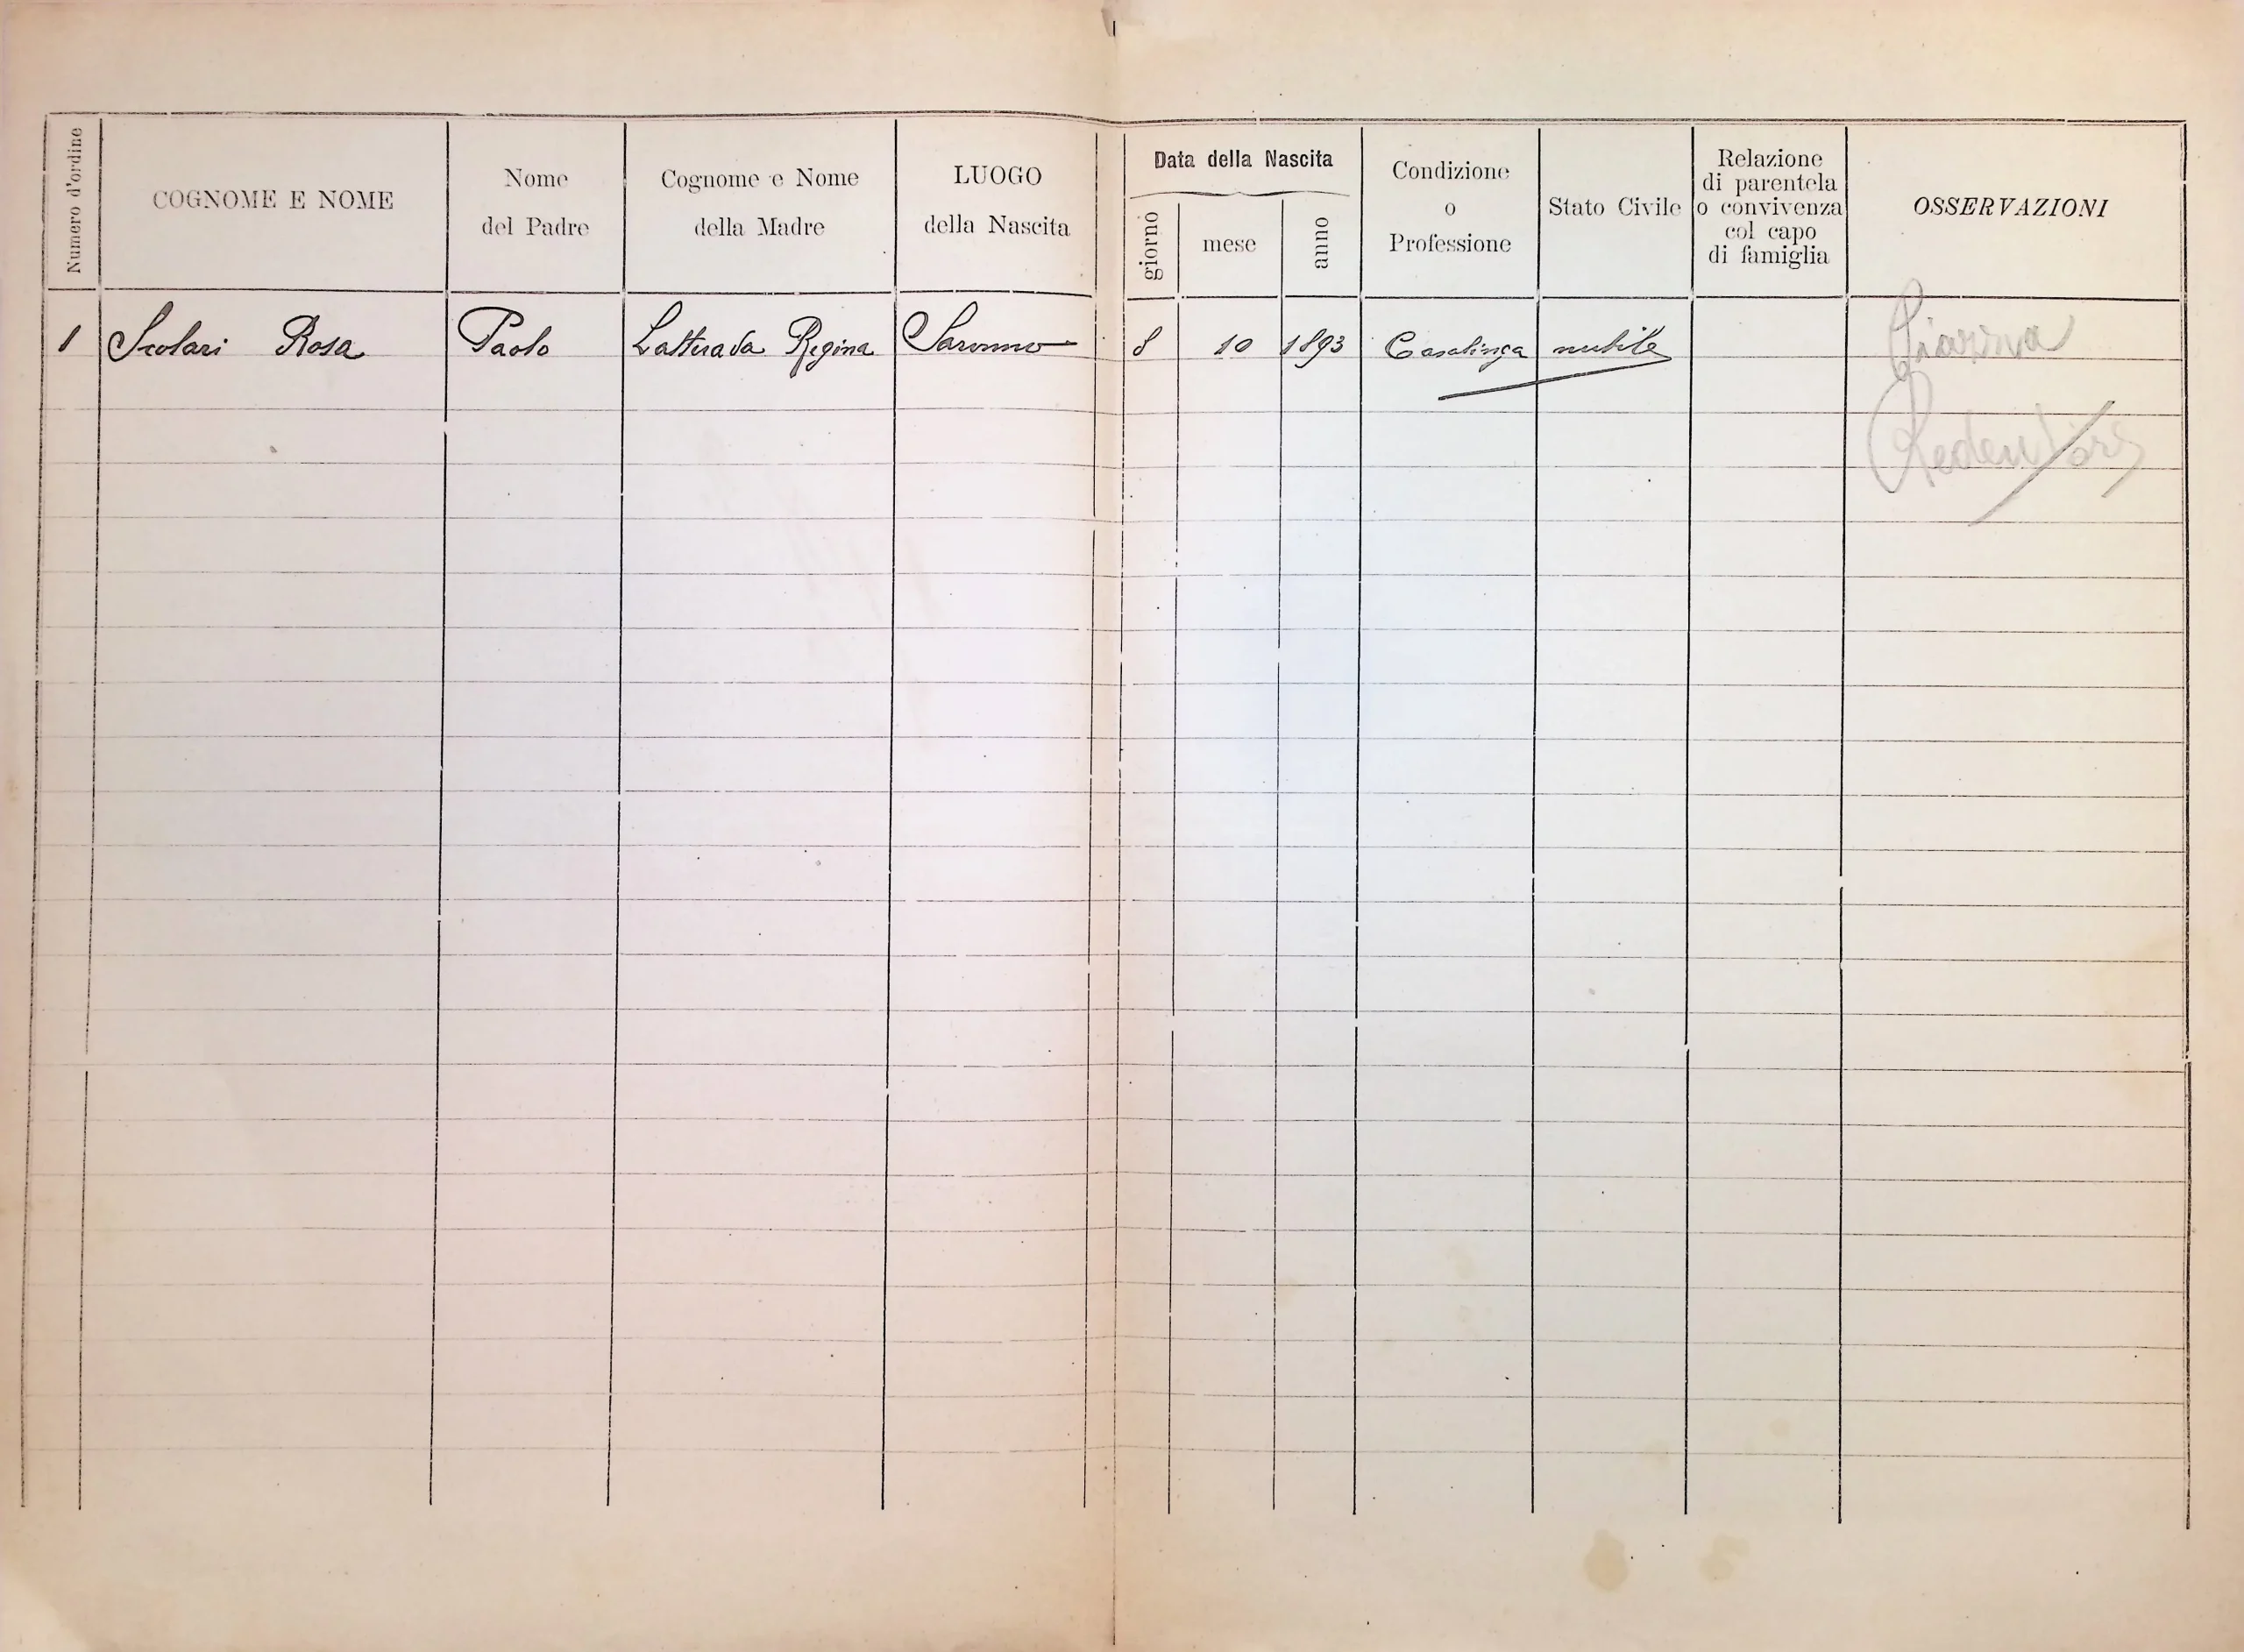 Numero d'ordine
COGNOME E NOME
Nome
del Padre
Cognome e Nome
della Madre
LUOGO
della Nascita
Data della Nascita
giorno
mese
anno
Condizione
o
Professione
Stato Civile
Relazione
di parentela
o convivenza
col capo
di famiglia
OSSERVAZIONI
1 Scolari Rosa Paolo Latterada Regina Saronno 8 10 1893 Casalinga nubile